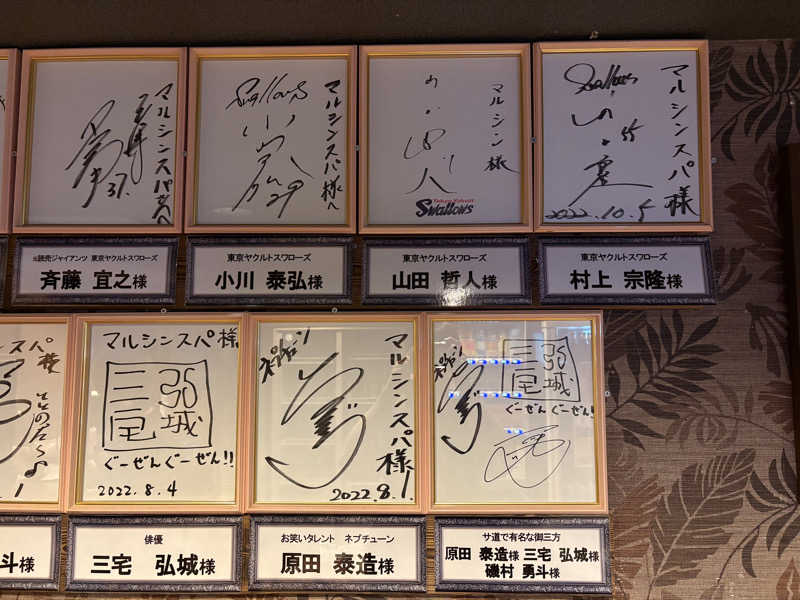 マルシンスパ様へ
巨人軍
37.
元読売ジャイアンツ 東京ヤクルトスワローズ
斉藤 宜之様
マルシンスパ様へ
Swallows
29
東京ヤクルトスワローズ
小川 泰弘様
マルシン様
Tokyo Yakult
Swallows
東京ヤクルトスワローズ
山田 哲人様
マルシンスパ様
Swallows
55
2022.10.5
東京ヤクルトスワローズ
村上 宗隆様
スパ様
ととのった〜♪
斗様
マルシンスパ様
三宅弘城
ぐーぜんぐーぜん!!
2022.8.4
俳優
三宅 弘城様
マルシンスパ様
ネプチューン
2022.8.1
お笑いタレント ネプチューン
原田 泰造様
ネプチューン
三宅弘城
ぐーぜんぐーぜん!!
サ道で有名な御三方
原田 泰造様 三宅 弘城様
磯村 勇斗様